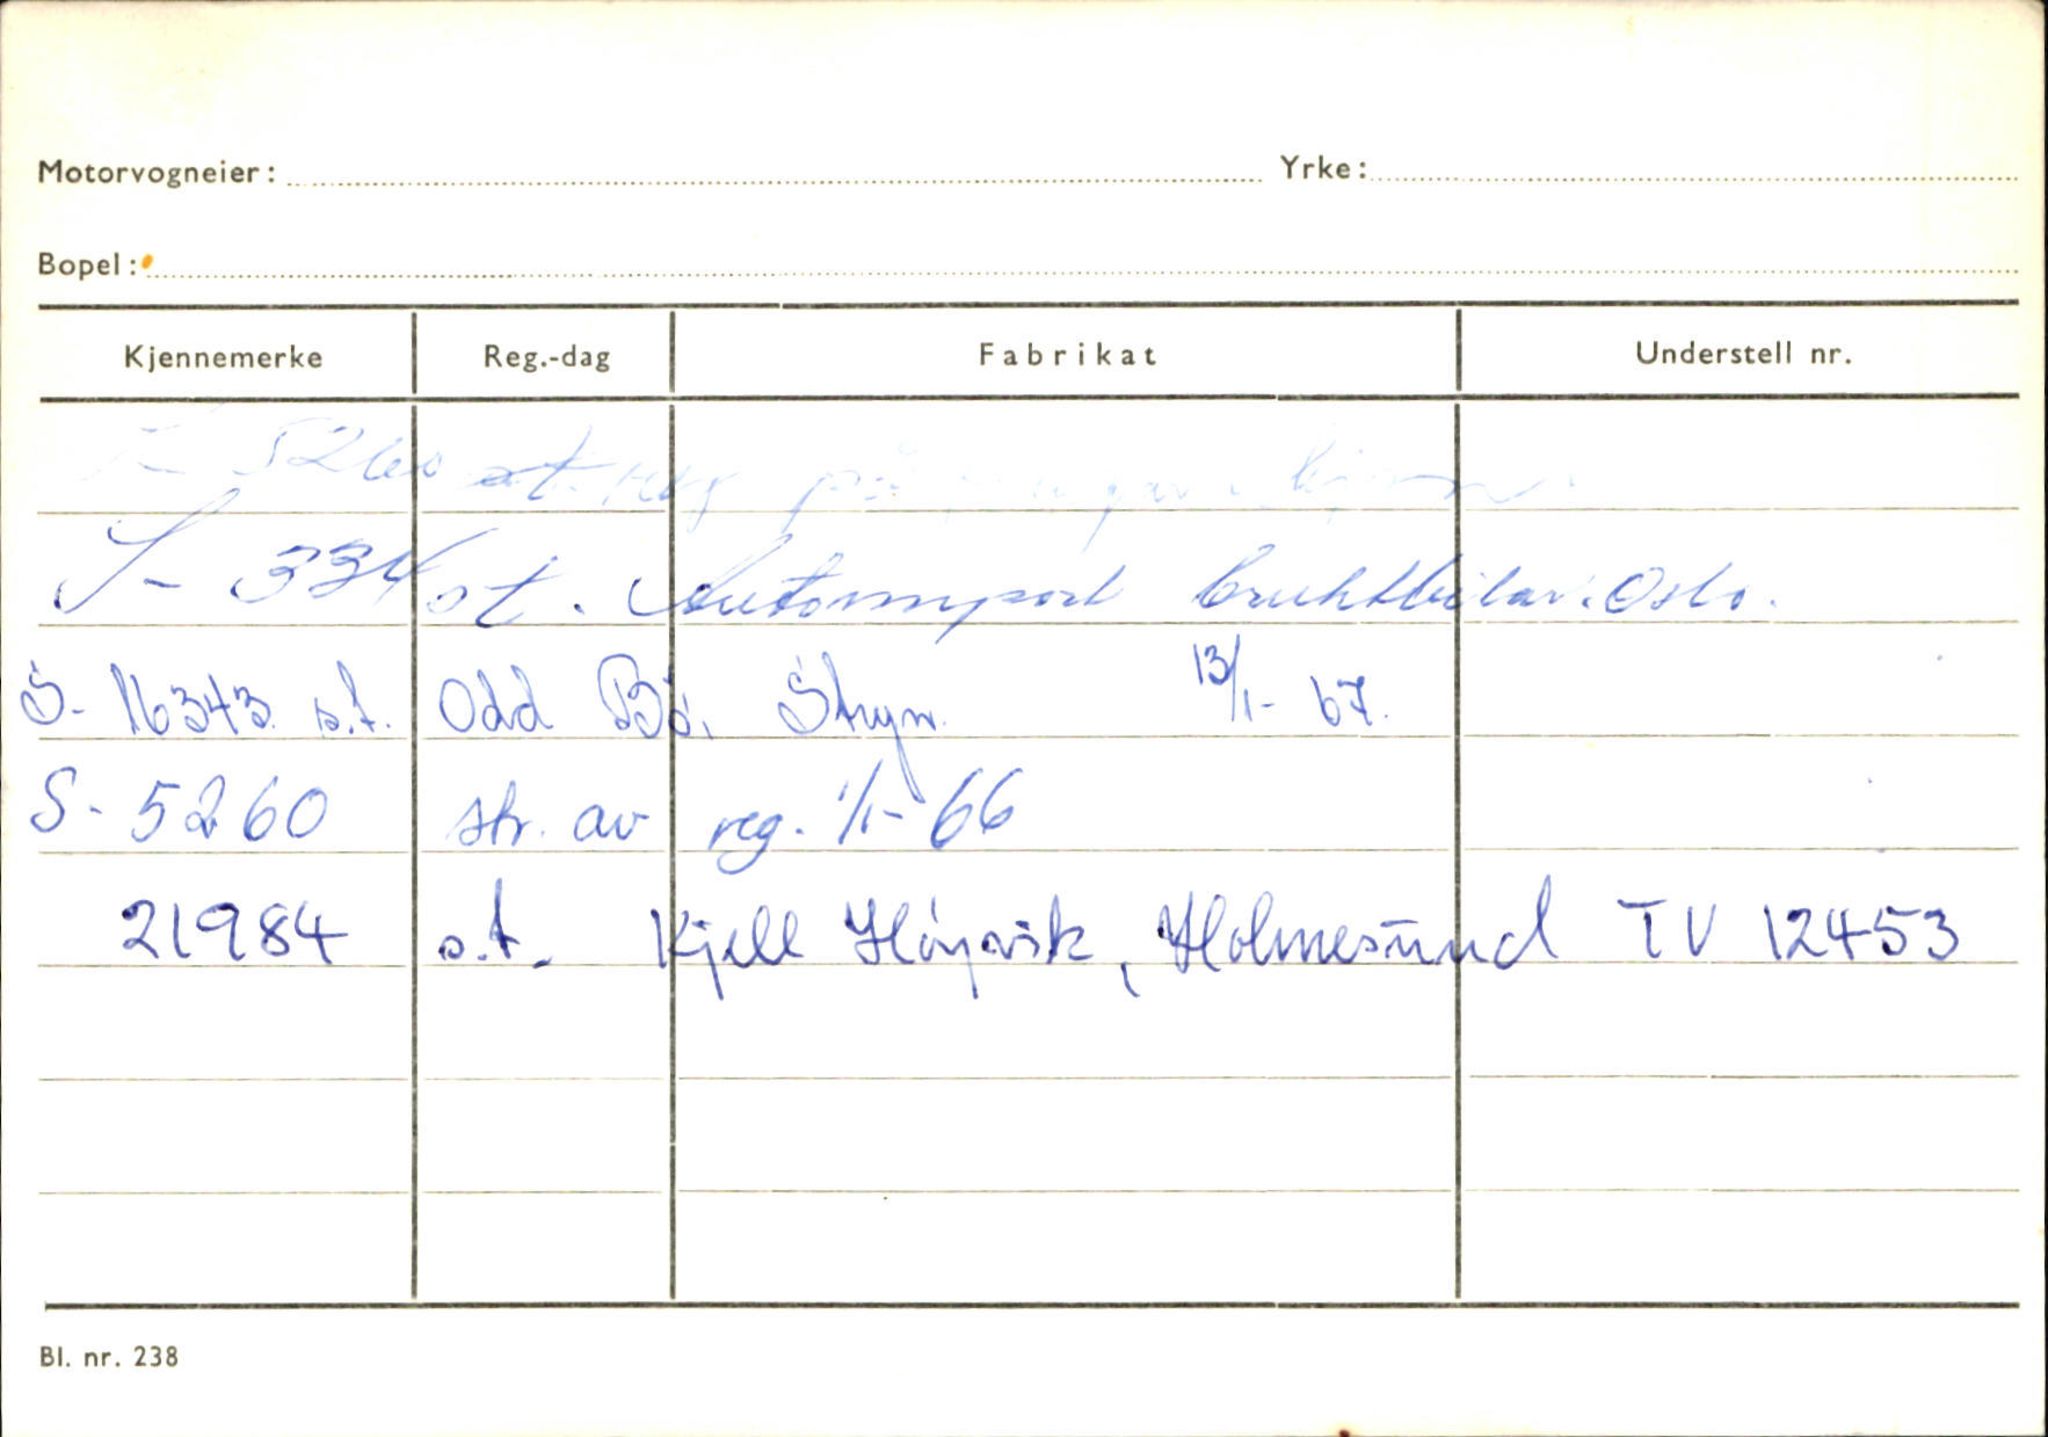 Motorvogneier: Yrke:
Bopel:
Kjennemerke Reg.-dag Fabrikat Understell nr.
5260 st. reg på
S- 334 st. Autoimport bruktbilar. Oslo.
S- 16343 s.t. Odd Bø. Stryn. 13/1- 67.
S- 5260 str. av reg. 1/1- 66
21984 s.t. Kjell Höyvik, Holmesund TV 12453
Bl. nr. 238